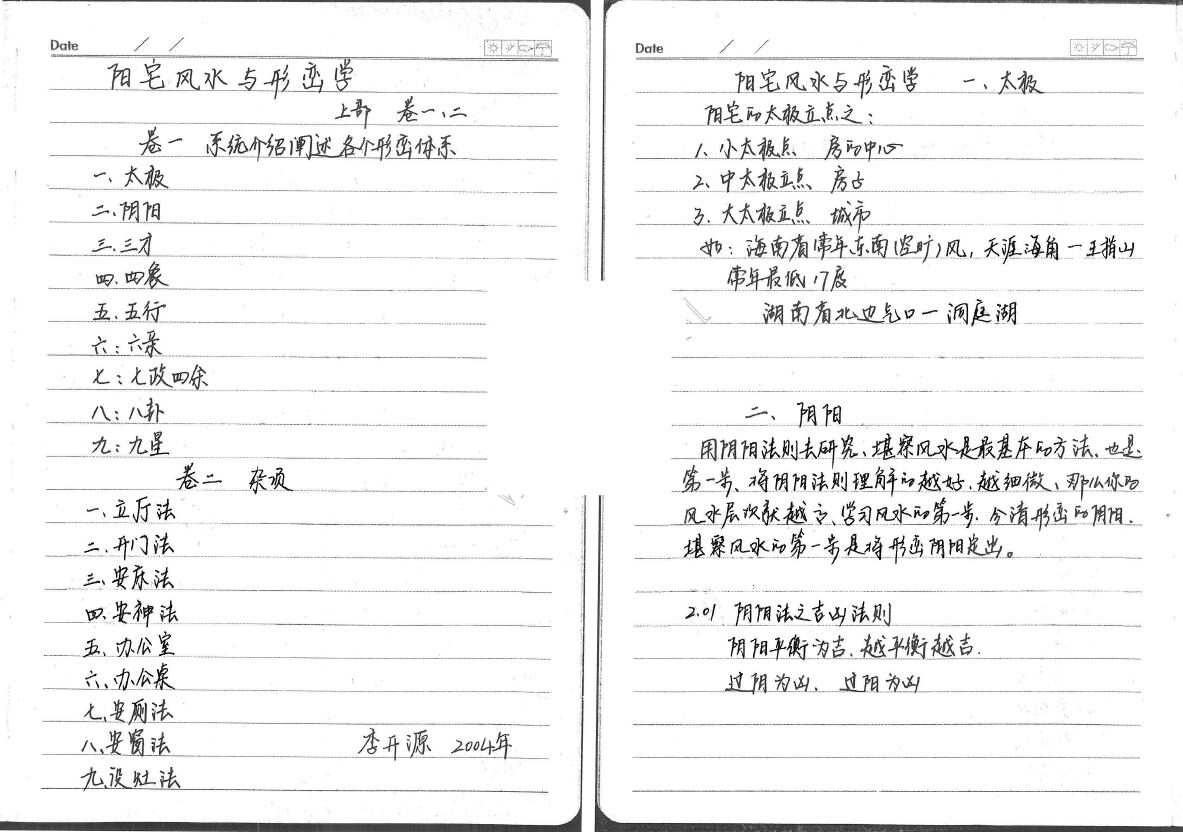 Date / /
阳宅风水与形峦学
上部 卷一、二
卷一 系统介绍阐述各个形峦体系
一、太极
二、阴阳
三、三才
四、四象
五、五行
六：六亲
七：七政四余
八：八卦
九：九星
卷二 杂项
一、立厅法
二、开门法
三、安床法
四、安神法
五、办公室
六、办公桌
七、安厕法
八、安窗法
李开源 2004年
九、设灶法
Date / /
阳宅风水与形峦学 一、太极
阳宅的太极立点之：
1、小太极点 房的中心
2、中太极立点 房占
3、大太极立点 城市
如：海南省常年东南（空旷）风，天涯海角一五指山
常年最低17度
湖南省北边气口一洞庭湖
二、阴阳
用阴阳法则去研究、堪察风水是最基本的方法、也是
第一步、将阴阳法则理解的越好、越细微、那么你的
风水层次就越高、学习风水的第一步、分清形峦的阴阳、
堪察风水的第一步是将形峦阴阳定出。
2.01 阴阳法之吉凶法则
阴阳平衡为吉、越平衡越吉.
过阴为凶、过阳为凶